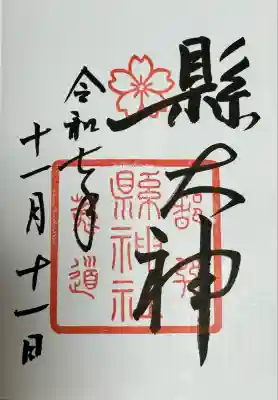 縣大神
縣神社
令和七年
十一月十一日